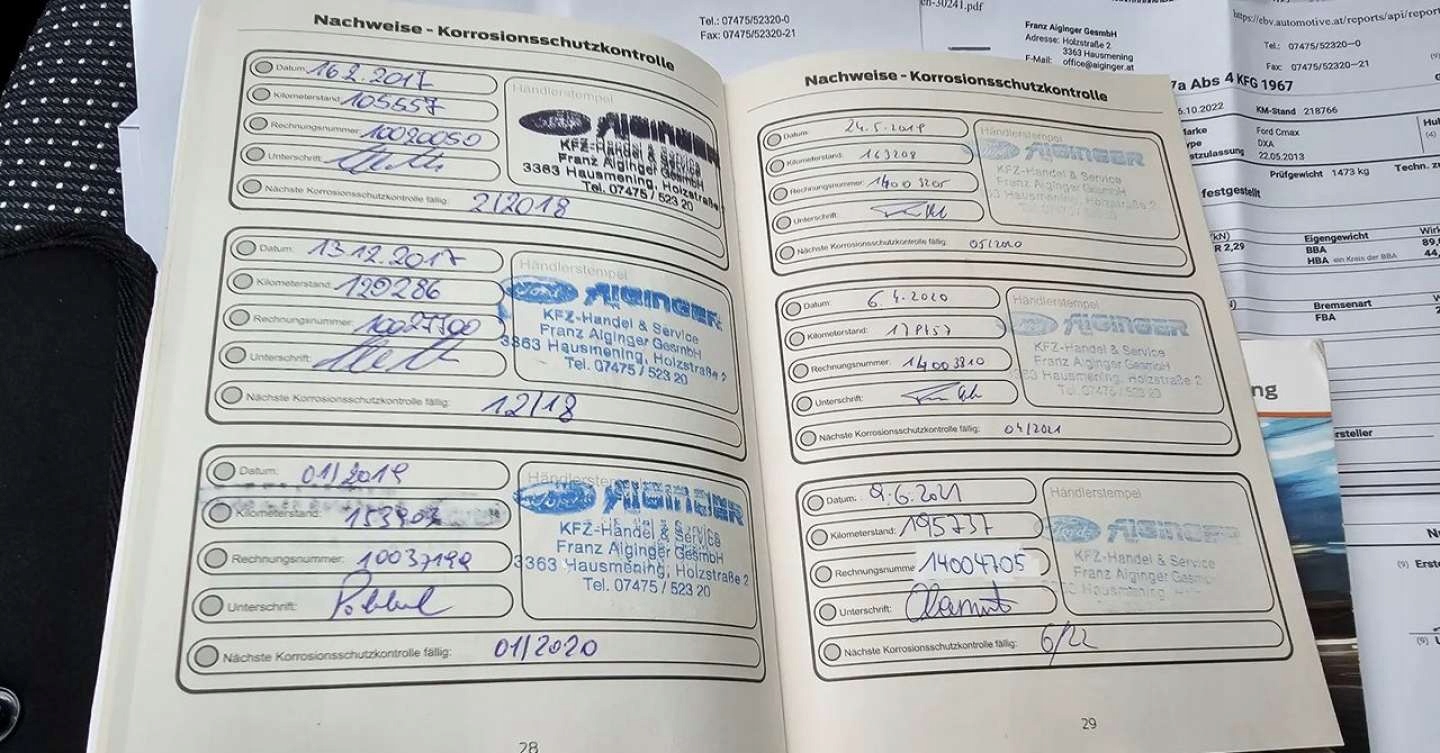 en-30241.pdf
Tel.: 07475/52320-0
Fax: 07475/52320-21
Franz Aiginger GesmbH
Adresse: Holzstraße 2
3363 Hausmening
E-Mail: office@aiginger.at
https://ebv.automotive.at/reports/api/report
Tel.: 07475/52320-0
Fax: 07475/52320-21
7a Abs 4 KFG 1967
.10.2022 KM-Stand 218766
Ford Cmax
DXA
22.05.2013
Prüfgewicht 1473 kg
Techn.
festgestellt
(kN) Eigengewicht
R 2,29 BBA
HBA ein Kreis der BBA
Bremsenart
FBA
Nachweise - Korrosionsschutzkontrolle
Datum: 16 2. 2017
Kilometerstand: 105557
Rechnungsnummer: 10020050
Unterschrift:
Nächste Korrosionsschutzkontrolle fällig: 2/2018
Händlerstempel
Ford AIGINGER
KFZ-Handel & Service
Franz Aiginger GesmbH
3363 Hausmening, Holzstraße
Tel. 07475 / 523 20
Datum: 13.12.2017
Kilometerstand: 120286
Rechnungsnummer: 10027700
Unterschrift:
Nächste Korrosionsschutzkontrolle fällig: 12/18
Händlerstempel
Ford AIGINGER
KFZ-Handel & Service
Franz Aiginger GesmbH
3363 Hausmening, Holzstraße 2
Tel. 07475 / 523 20
Datum: 01/2019
Kilometerstand: 153903
Rechnungsnummer: 10037199
Unterschrift:
Nächste Korrosionsschutzkontrolle fällig: 01/2020
Händlerstempel
Ford AIGINGER
KFZ-Handel & Service
Franz Aiginger GesmbH
3363 Hausmening, Holzstraße 2
Tel. 07475 / 523 20
28
Nachweise - Korrosionsschutzkontrolle
Datum: 24.5.2019
Kilometerstand: 163208
Rechnungsnummer: 14003205
Unterschrift:
Nächste Korrosionsschutzkontrolle fällig: 05/2020
Händlerstempel
AIGINGER
KFZ-Handel & Service
Franz Aiginger GesmbH
Hausmening, Holzstraße 2
Tel. 07475 / 523 20
Datum: 6.4.2020
Kilometerstand:
Rechnungsnummer: 14003810
Unterschrift:
Nächste Korrosionsschutzkontrolle fällig: 04/2021
Händlerstempel
AIGINGER
KFZ-Handel & Service
Franz Aiginger GesmbH
3363 Hausmening, Holzstraße 2
Tel. 07475 / 523 20
Datum: 9.6.2021
Kilometerstand: 195737
Rechnungsnumme 14004705
Unterschrift:
Nächste Korrosionsschutzkontrolle fällig: 6/22
Händlerstempel
Ford AIGINGER
KFZ-Handel & Service
Franz Aiginger Gesmb
Hausmening,
29